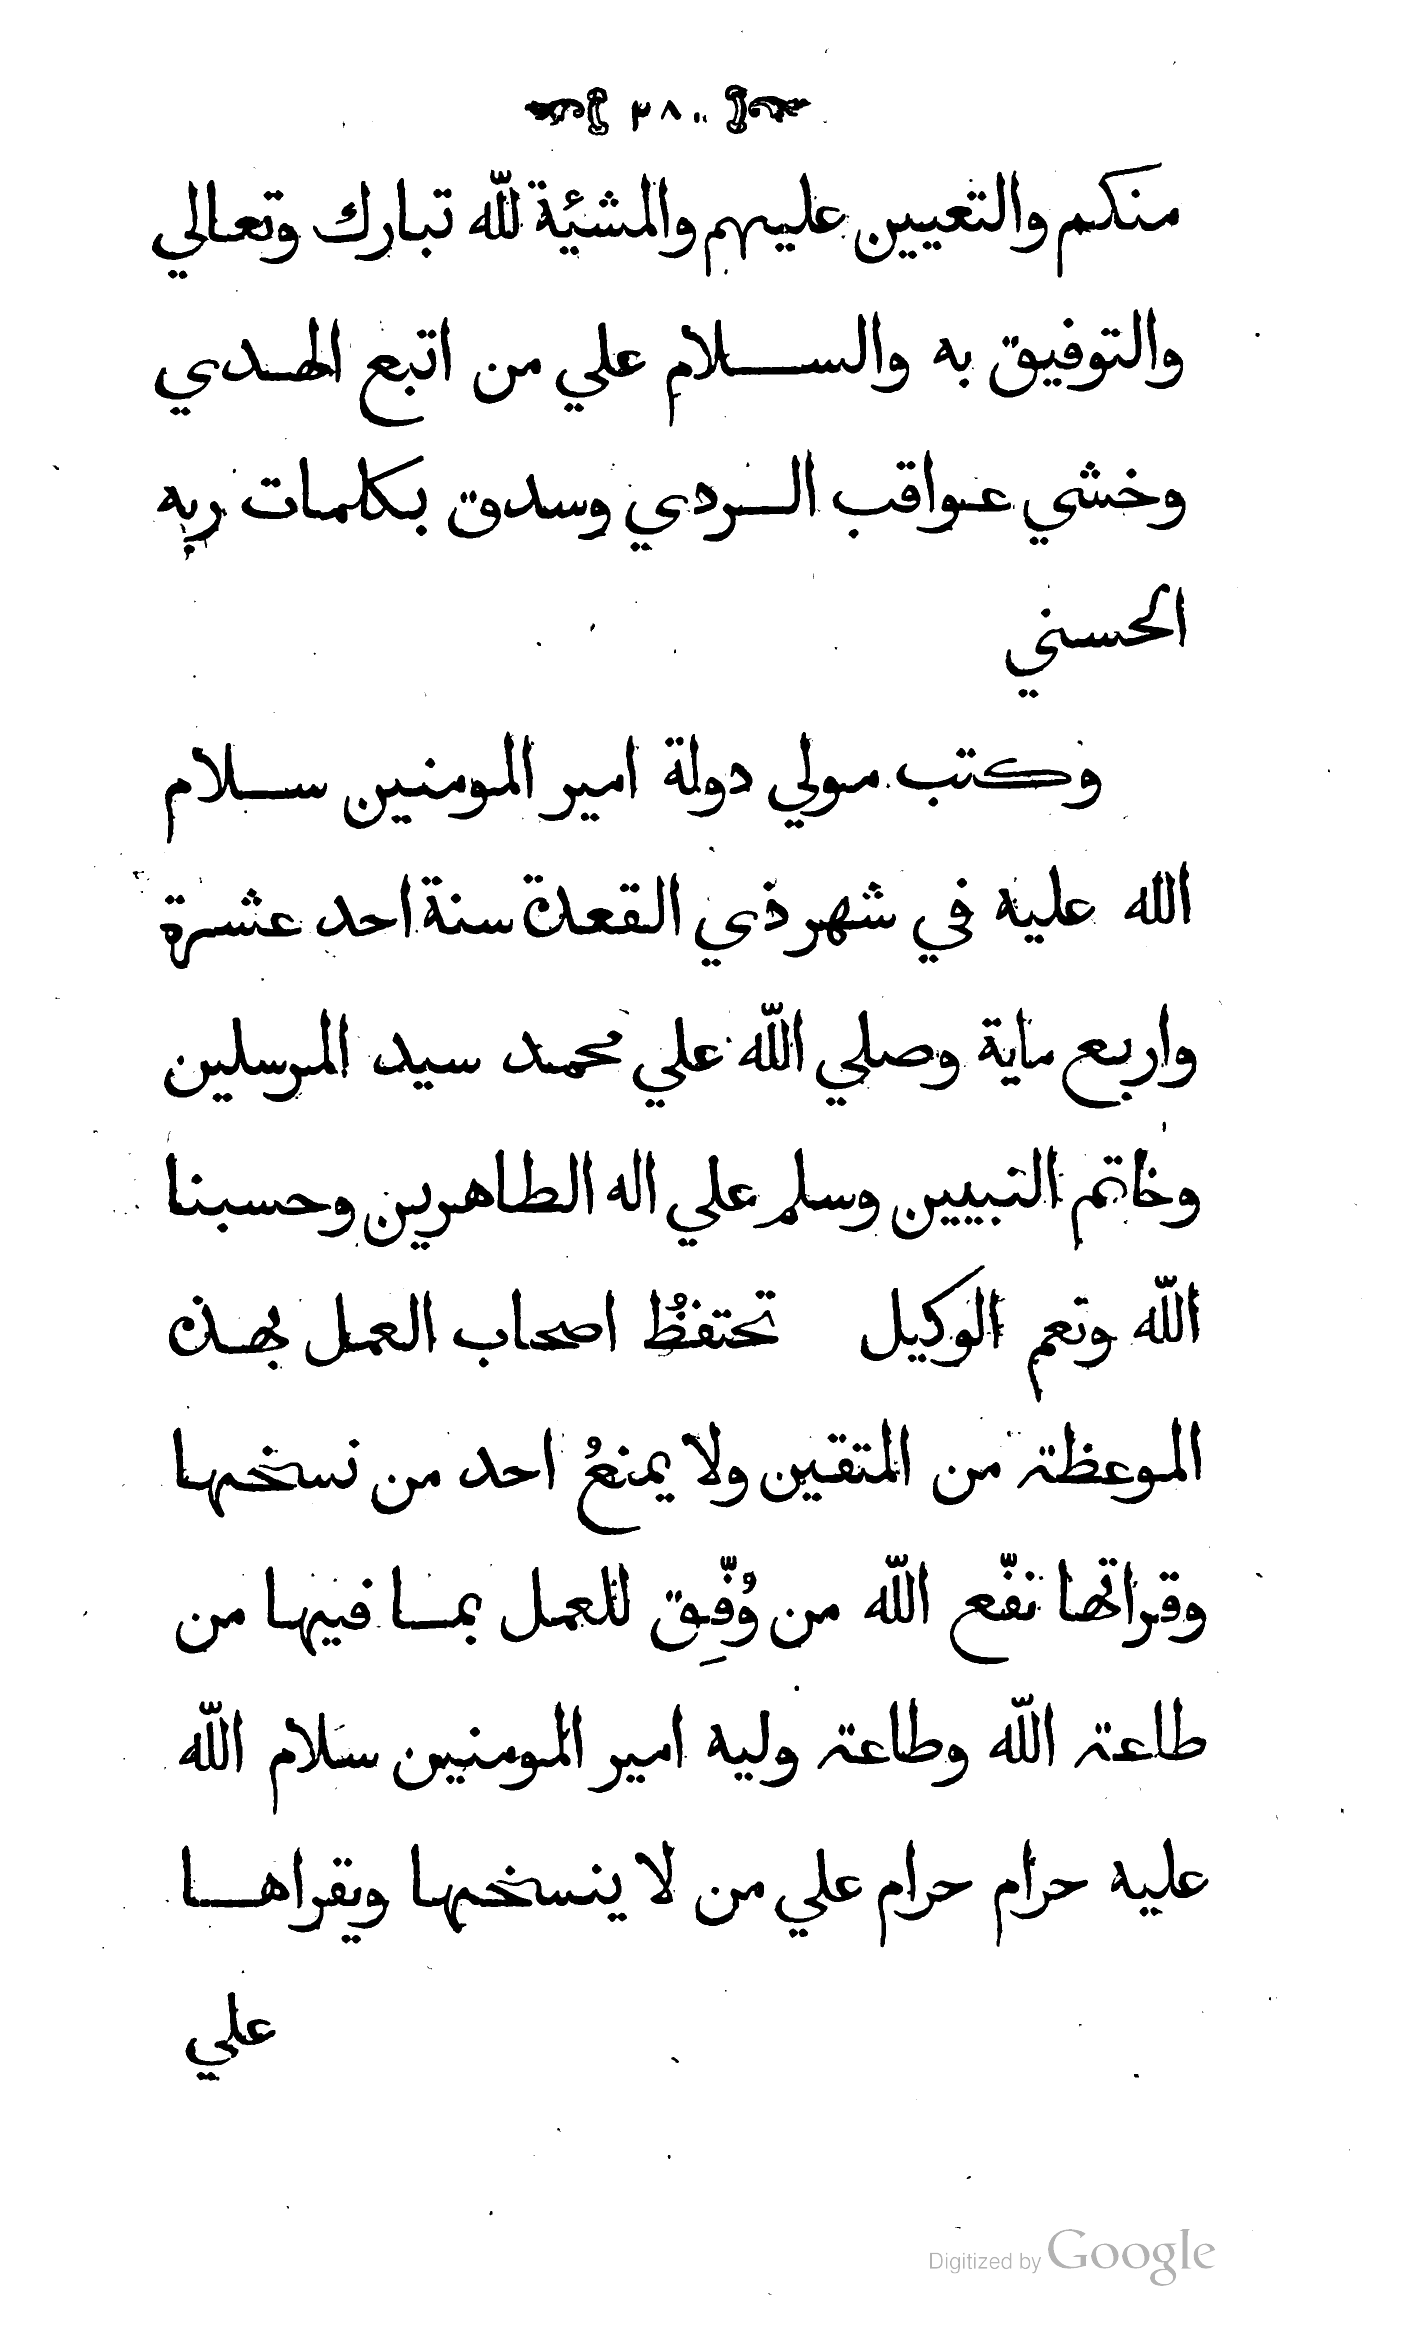 ٣٨٠
منكم والتعيين عليهم والمشئية لله تبارك وتعالي
والتوفيق به والسلام علي من اتبع الهدي
وخشي عواقب الردي وسدق بكلمات ربه
الحسني
وكتب مولي دولة امير المومنين سلام
الله عليه في شهر ذي القعدة سنة احد عشرة
واربع ماية وصلي الله علي محمد سيد المرسلين
وخاتم النبيين وسلم علي اله الطاهرين وحسبنا
الله ونعم الوكيل تحتفظُ اصحاب العمل بهذه
الموعظة من المتقين ولا يمنعُ احد من نسخها
وقراتها نفّع الله من وُفِّق للعمل بما فيها من
طاعة الله وطاعة وليه امير المومنين سلام الله
عليه حرام حرام علي من لا ينسخها ويقراها
علي
Digitized by Google